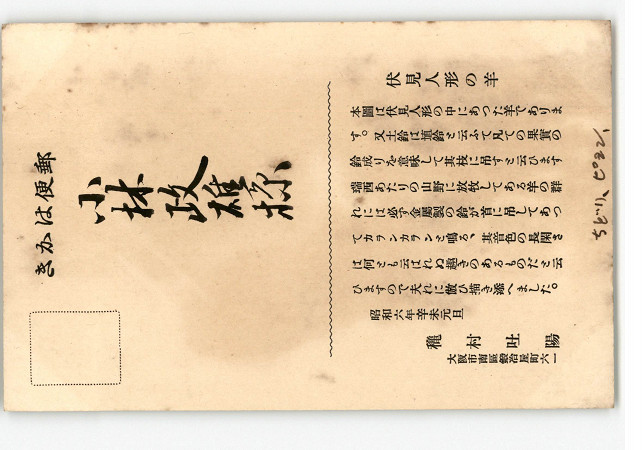 郵便はかき
小林政雄様
伏見人形の羊
本圖は伏見人形の中にあつた羊でありま
す。又土鈴は塤鈴と云ふて凡ての果實の
鈴成りを意味して其林に吊すと云ひます
瑞西あたりの山野に放牧してある羊の群
れには必ず金屬製の鈴が首に吊してあつ
てカランカランと鳴る、其音色の長閑さ
は何とも云はれぬ趣きのあるものだと云
ひますので夫れに倣ひ描き添へました。
昭和六年辛未元旦
龝村吐陽
大阪市南區鍛冶屋町六一